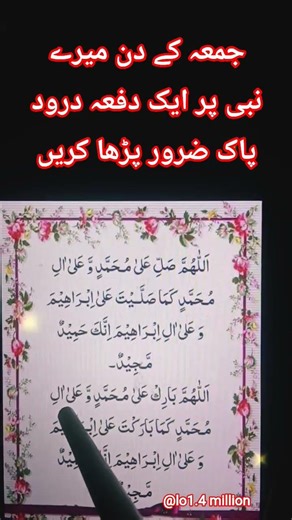 جمعہ کے دن میرے
نبی پر ایک دفعہ درود
پاک ضرور پڑھا کریں
اَللّٰهُمَّ صَلِّ عَلٰی مُحَمَّدٍ وَّ عَلٰۤی اٰلِ
مُحَمَّدٍ كَمَا صَلَّیْتَ عَلٰۤی اِبْرَاهِیْمَ
وَ عَلٰۤی اٰلِ اِبْرَاهِیْمَ اِنَّكَ حَمِیْدٌ
مَّجِیْدٌ۔
اَللّٰهُمَّ بَارِكْ عَلٰی مُحَمَّدٍ وَّ عَلٰۤی اٰلِ
مُحَمَّدٍ كَمَا بَارَكْتَ عَلٰۤی اِبْرَاهِیْمَ
وَ عَلٰۤی اٰلِ اِبْرَاهِیْمَ
@lo1.4 million